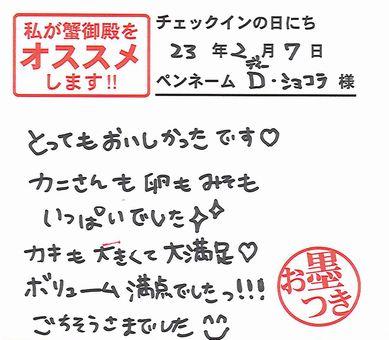 私が蟹御殿を
オススメ
します!!
チェックインの日にち
23 年 2 月 7 日
ディー
ペンネーム D・ショコラ 様
とってもおいしかったです♡
カニさんも卵もみそも
いっぱいでした✧✧
カキも大きくて大満足♡
ボリューム満点でしたっ!!!
ごちそうさまでした
お墨つき